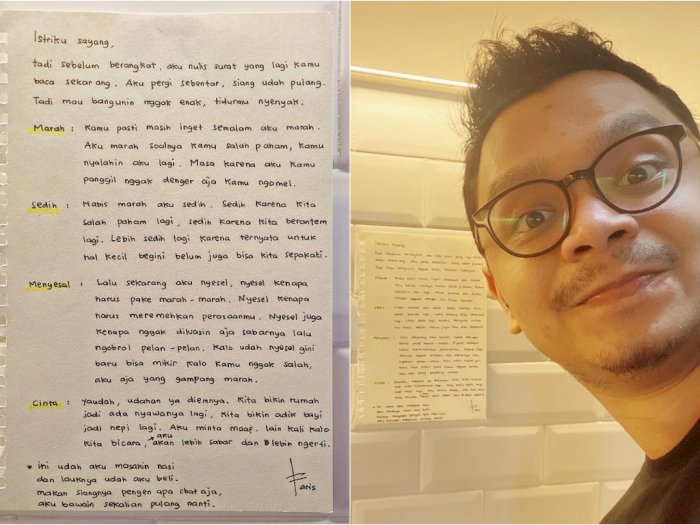 Istriku sayang,
tadi sebelum berangkat, aku nulis surat yang lagi kamu
baca sekarang. Aku pergi sebentar, siang udah pulang.
Tadi mau bangunin nggak enak, tidurmu nyenyak.
Marah : Kamu pasti masih inget semalam aku marah.
Aku marah soalnya kamu salah paham, kamu
nyalahin aku lagi. Masa karena aku kamu
panggil nggak denger aja kamu ngomel.
Sedih : Habis marah aku sedih. Sedih karena kita
salah paham lagi, sedih karena kita berantem
lagi. Lebih sedih lagi karena ternyata untuk
hal kecil begini belum juga bisa kita sepakati.
Menyesal : Lalu sekarang aku nyesel, nyesel kenapa
harus pake marah-marah. Nyesel kenapa
harus meremehkan perasaanmu. Nyesel juga
kenapa nggak diluasin aja sabarnya lalu
ngobrol pelan-pelan. Kalo udah nyesel gini
baru bisa mikir kalo kamu nggak salah,
aku aja yang gampang marah.
Cinta : Yaudah, udahan ya diemnya. Kita bikin rumah
jadi ada nyawanya lagi, kita bikin adik bayi
jadi nepi lagi. Aku minta maaf. lain kali kalo
kita bicara, aku akan lebih sabar dan lebih ngerti.
* Ini udah aku masakin nasi
dan lauknya udah aku beli.
makan siangnya pengen apa chat aja,
aku bawain sekalian pulang nanti.
Faris